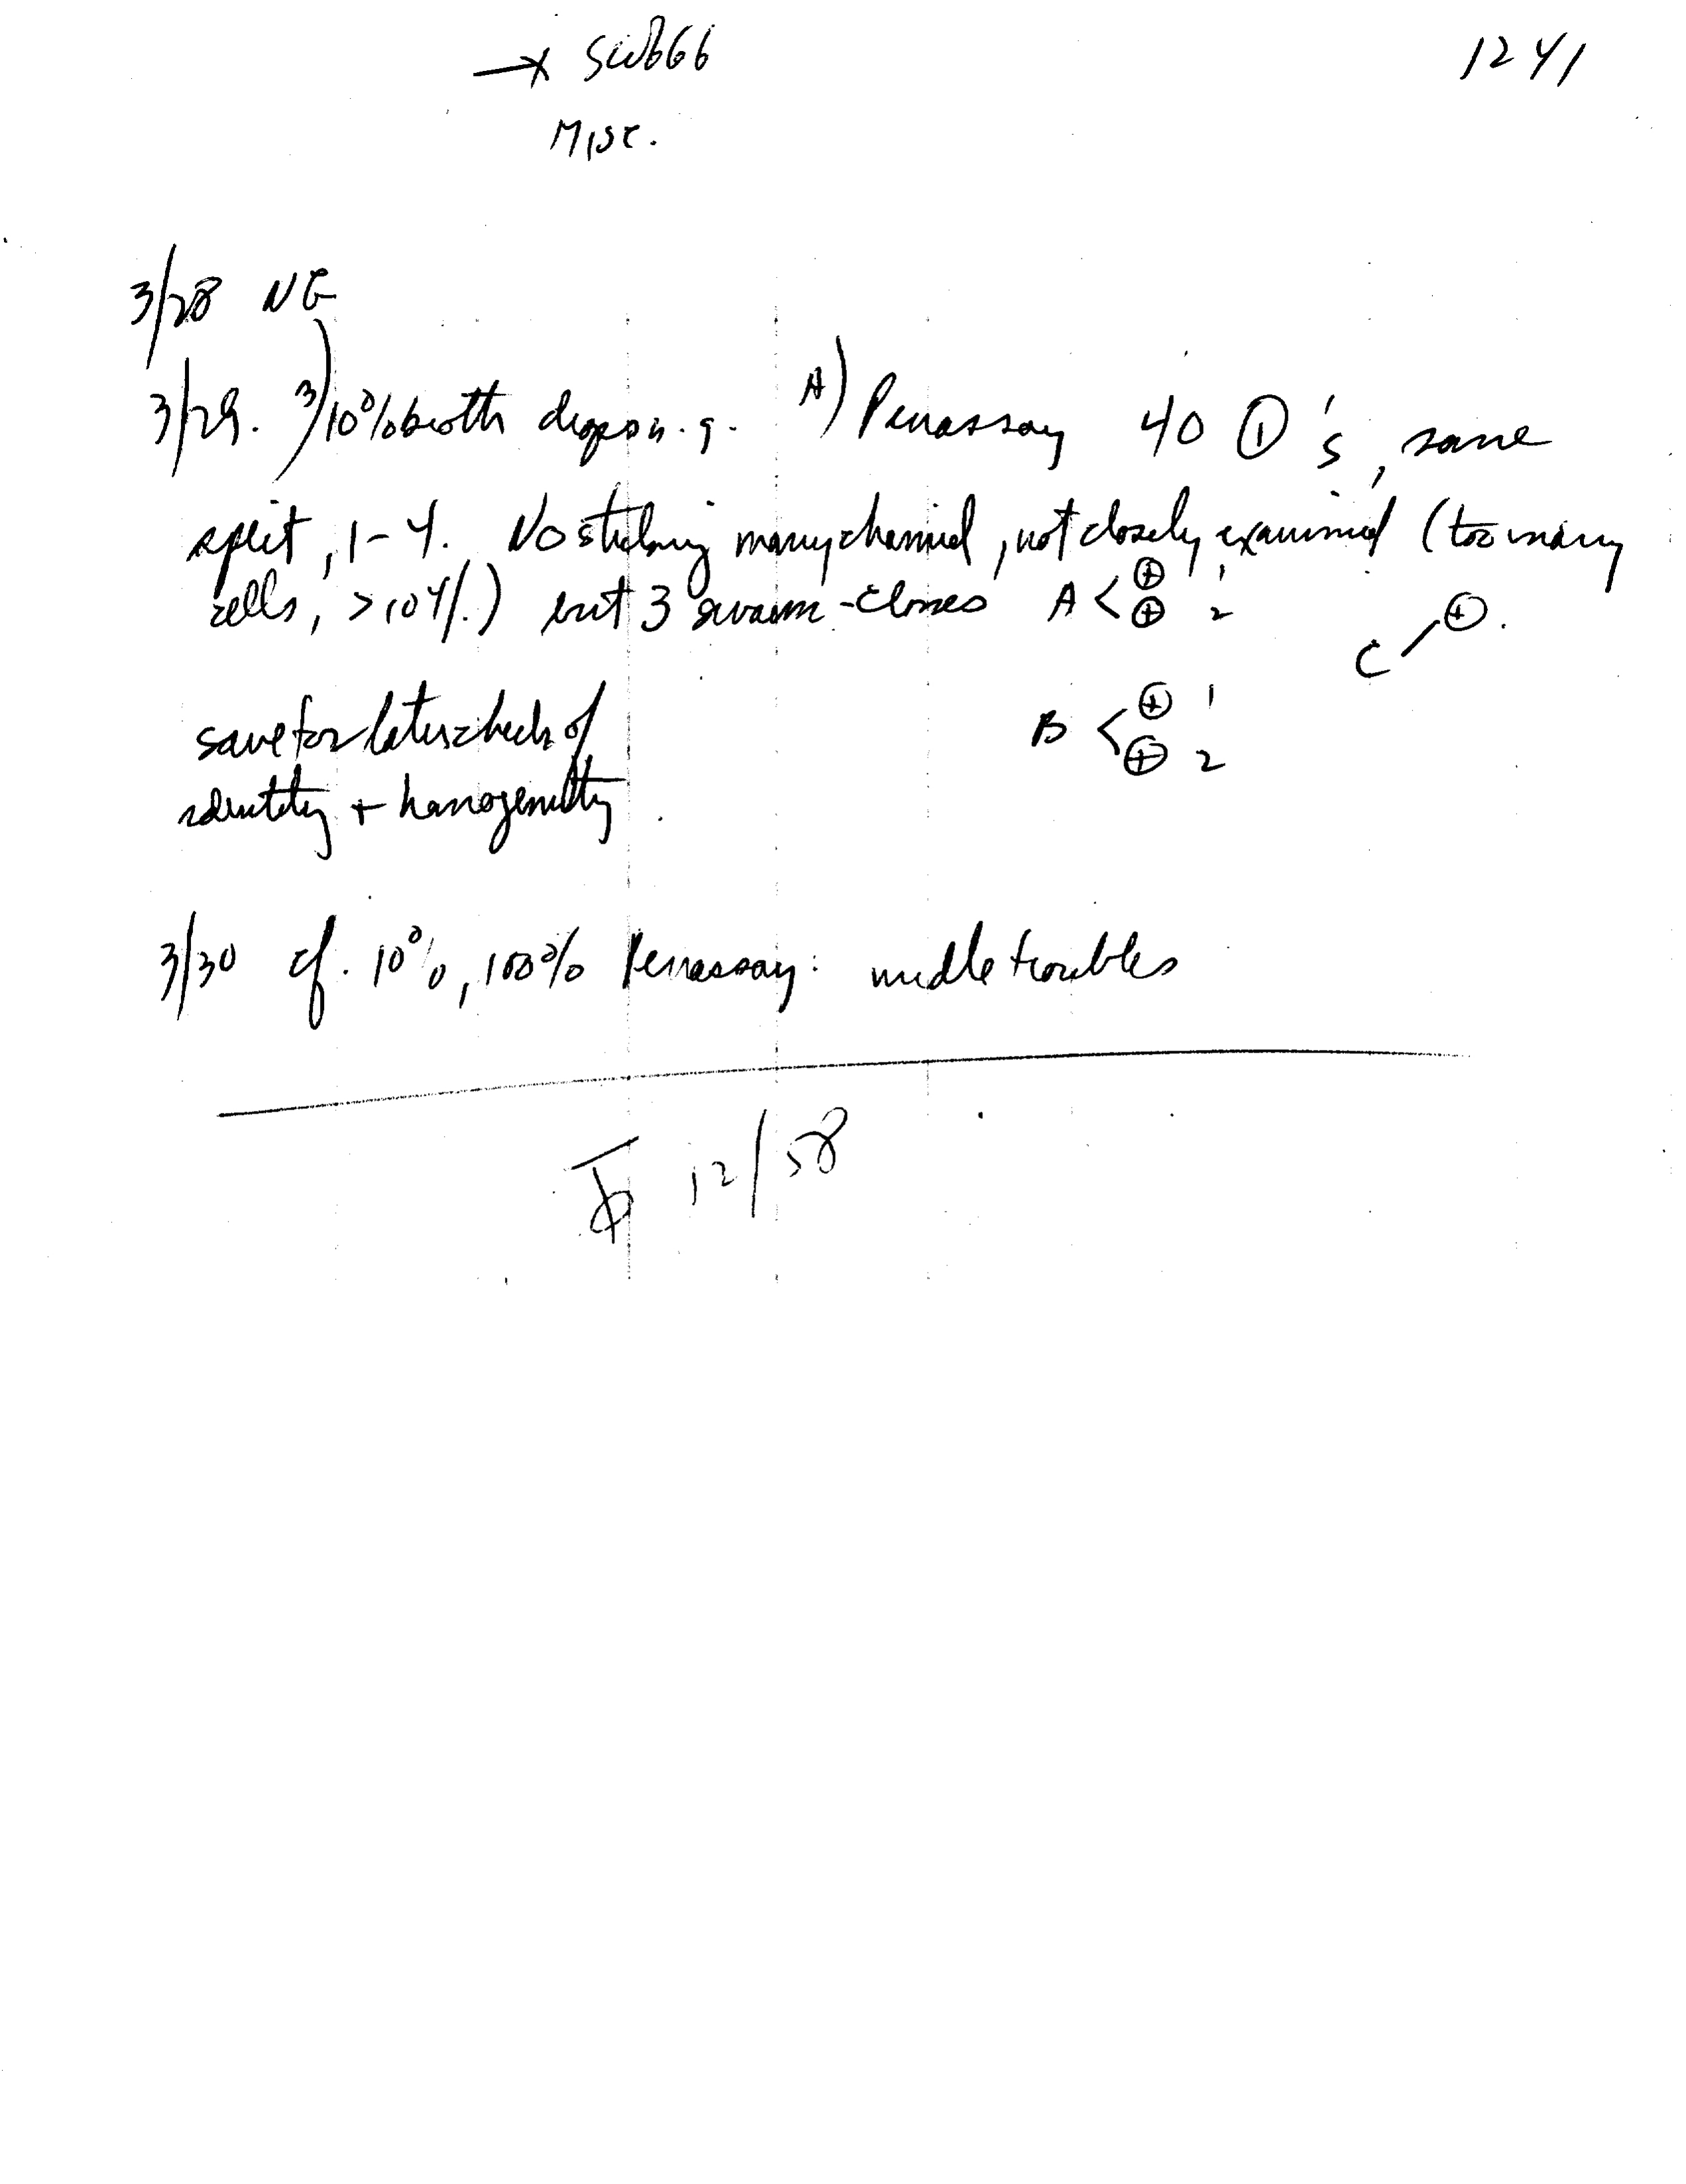 —x SW666 1241
Misc.
3/28 NG
3/29. 3) 10% broth drops n.g. A) Penassay 40 ①'s, same
split, 1-4. No many channel, not closely examined (too many
cells, >10^4/.) but 3 swarm-clones A < ⊕ 1 ⊕ 2 C / ⊕.
save for later check of B < ⊕ 1 ⊕ 2
identity + homogeneity.
3/30 cf. 10%, 100% Penassay: needle troubles
12/58